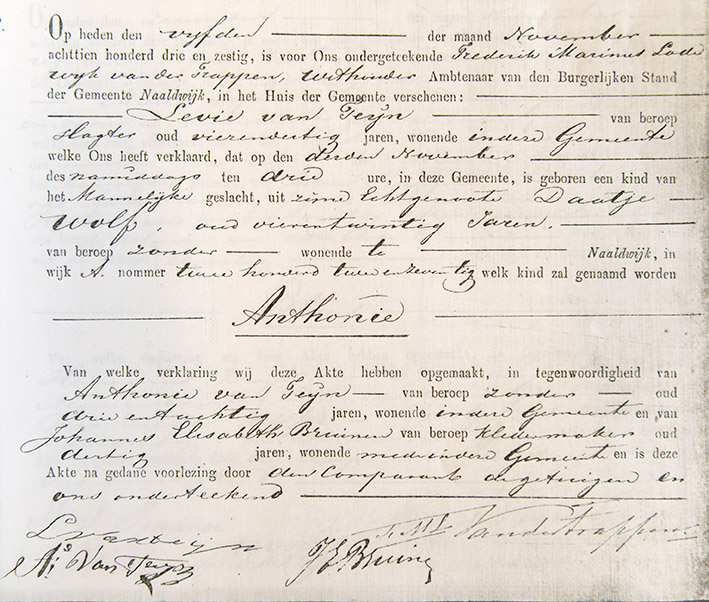 Op heden den vyfden der maand November
achttien honderd drie en zestig, is voor Ons ondergeteekende Frederik Marinus Lode
wyk van der Trappen, Wethouder Ambtenaar van den Burgerlijken Stand
der Gemeente Naaldwijk, in het Huis der Gemeente verschenen:
Levie van Teyn van beroep
Slagter oud vierendertig jaren, wonende in deze Gemeente
welke Ons heeft verklaard, dat op den derden November
des namiddags ten drie ure, in deze Gemeente, is geboren een kind van
het Mannelijke geslacht, uit zijne Echtgenoote Daatje
Wolf, oud vierentwintig Jaren.
van beroep zonder wonende te Naaldwijk, in
wijk A. nommer twee honderd twee en zeventig welk kind zal genaamd worden
Anthonie
Van welke verklaring wij deze Akte hebben opgemaakt, in tegenwoordigheid van
Anthonie van Teyn van beroep zonder oud
drie en tachtig jaren, wonende in deze Gemeente en van
Johannes Elisabeth Bruinen van beroep kledermaker oud
dertig jaren, wonende mede in deze Gemeente en is deze
Akte na gedane voorlezing door den Comparant de getuigen en
ons onderteekend
L van Teijn
F. M. L. VanderTrappen
As Van Teyn
J E. Bruine